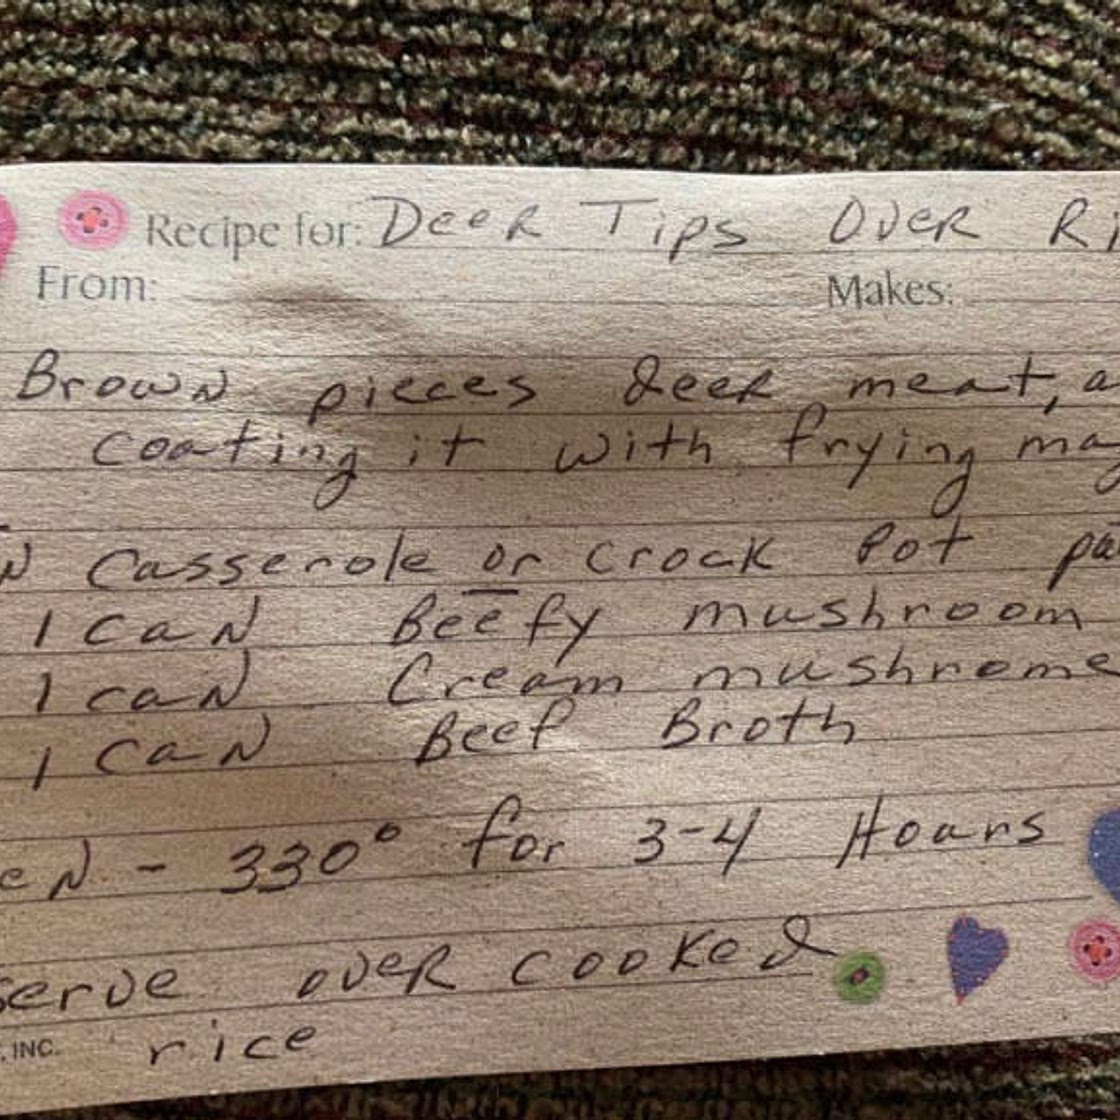 Recipe for: Deer Tips Over Ri
From: Makes:
Brown pieces deer meat, a
coating it with frying mag
N Casserole or crock pot pa
1 can Beefy mushroom
1 can Cream mushrome
1 can Beef Broth
en - 330° for 3-4 Hours
serve over cooked
rice
, INC.